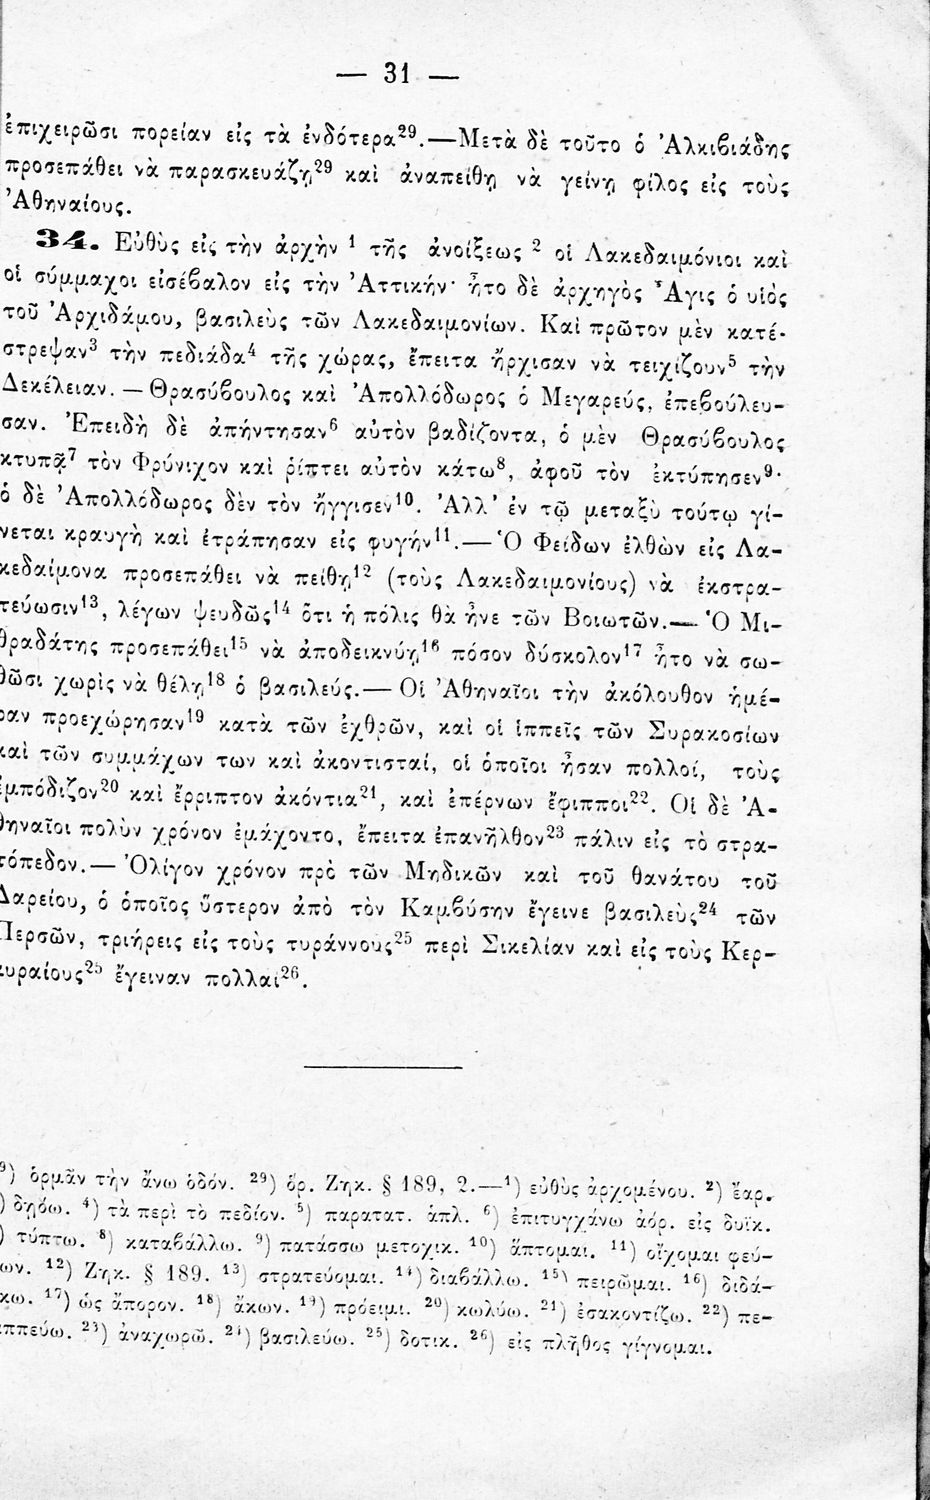 — 31 —
ἐπιχειρῶσι πορείαν εἰς τὰ ἐνδότερα²⁹.—Μετὰ δὲ τοῦτο ὁ Ἀλκιβιάδης
προσεπάθει νὰ παρασκευάζῃ²⁹ καὶ ἀναπείθῃ νὰ γείνῃ φίλος εἰς τοὺς
Ἀθηναίους.
34. Εὐθὺς εἰς τὴν ἀρχὴν ¹ τῆς ἀνοίξεως ² οἱ Λακεδαιμόνιοι καὶ
οἱ σύμμαχοι εἰσέβαλον εἰς τὴν Ἀττικήν· ἦτο δὲ ἀρχηγὸς Ἆγις ὁ υἱὸς
τοῦ Ἀρχιδάμου, βασιλεὺς τῶν Λακεδαιμονίων. Καὶ πρῶτον μὲν κατέ-
στρεψαν³ τὴν πεδιάδα⁴ τῆς χώρας, ἔπειτα ἤρχισαν νὰ τειχίζουν⁵ τὴν
Δεκέλειαν. — Θρασύβουλος καὶ Ἀπολλόδωρος ὁ Μεγαρεύς, ἐπεβούλευ-
σαν. Ἐπειδὴ δὲ ἀπήντησαν⁶ αὐτὸν βαδίζοντα, ὁ μὲν Θρασύβουλος
κτυπᾷ⁷ τὸν Φρύνιχον καὶ ῥίπτει αὐτὸν κάτω⁸, ἀφοῦ τὸν ἐκτύπησεν⁹·
ὁ δὲ Ἀπολλόδωρος δὲν τὸν ἤγγισεν¹⁰. Ἀλλ' ἐν τῷ μεταξὺ τούτῳ γί-
νεται κραυγὴ καὶ ἐτράπησαν εἰς φυγήν¹¹.—Ὁ Φείδων ἐλθὼν εἰς Λα-
κεδαίμονα προσεπάθει νὰ πείθῃ¹² (τοὺς Λακεδαιμονίους) νὰ ἐκστρα-
τεύωσιν¹³, λέγων ψευδῶς¹⁴ ὅτι ἡ πόλις θὰ ἦνε τῶν Βοιωτῶν.— Ὁ Μι-
θραδάτης προσεπάθει¹⁵ νὰ ἀποδεικνύῃ¹⁶ πόσον δύσκολον¹⁷ ἦτο νὰ σω-
θῶσι χωρὶς νὰ θέλῃ¹⁸ ὁ βασιλεύς.— Οἱ Ἀθηναῖοι τὴν ἀκόλουθον ἡμέ-
ραν προεχώρησαν¹⁹ κατὰ τῶν ἐχθρῶν, καὶ οἱ ἱππεῖς τῶν Συρακοσίων
καὶ τῶν συμμάχων των καὶ ἀκοντισταί, οἱ ὁποῖοι ἦσαν πολλοί, τοὺς
ἐμπόδιζον²⁰ καὶ ἔρριπτον ἀκόντια²¹, καὶ ἐπέρνων ἔφιπποι²². Οἱ δὲ Ἀ-
θηναῖοι πολὺν χρόνον ἐμάχοντο, ἔπειτα ἐπανῆλθον²³ πάλιν εἰς τὸ στρα-
τόπεδον.— Ὀλίγον χρόνον πρὸ τῶν Μηδικῶν καὶ τοῦ θανάτου τοῦ
Δαρείου, ὁ ὁποῖος ὕστερον ἀπὸ τὸν Καμβύσην ἔγεινε βασιλεὺς²⁴ τῶν
Περσῶν, τριήρεις εἰς τοὺς τυράννους²⁵ περὶ Σικελίαν καὶ εἰς τοὺς Κερ-
κυραίους²⁵ ἔγειναν πολλαί²⁶.
⁹) ὁρμᾶν τὴν ἄνω ὁδόν. ²⁹) ὅρ. Ζηκ. § 189, 2.—¹) εὐθὺς ἀρχομένου. ²) ἔαρ.
) δῃόω. ⁴) τὰ περὶ τὸ πεδίον. ⁵) παρατατ. ἁπλ. ⁶) ἐπιτυγχάνω ἀόρ. εἰς δυϊκ.
) τύπτω. ⁸) καταβάλλω. ⁹) πατάσσω μετοχικ. ¹⁰) ἅπτομαι. ¹¹) οἴχομαι φεύ-
ων. ¹²) Ζηκ. § 189. ¹³) στρατεύομαι. ¹⁴) διαβάλλω. ¹⁵) πειρῶμαι. ¹⁶) διδά-
κω. ¹⁷) ὡς ἄπορον. ¹⁸) ἄκων. ¹⁹) πρόειμι. ²⁰) κωλύω. ²¹) ἐσακοντίζω. ²²) πε-
ιππεύω. ²³) ἀναχωρῶ. ²⁴) βασιλεύω. ²⁵) δοτικ. ²⁶) εἰς πλῆθος γίγνομαι.